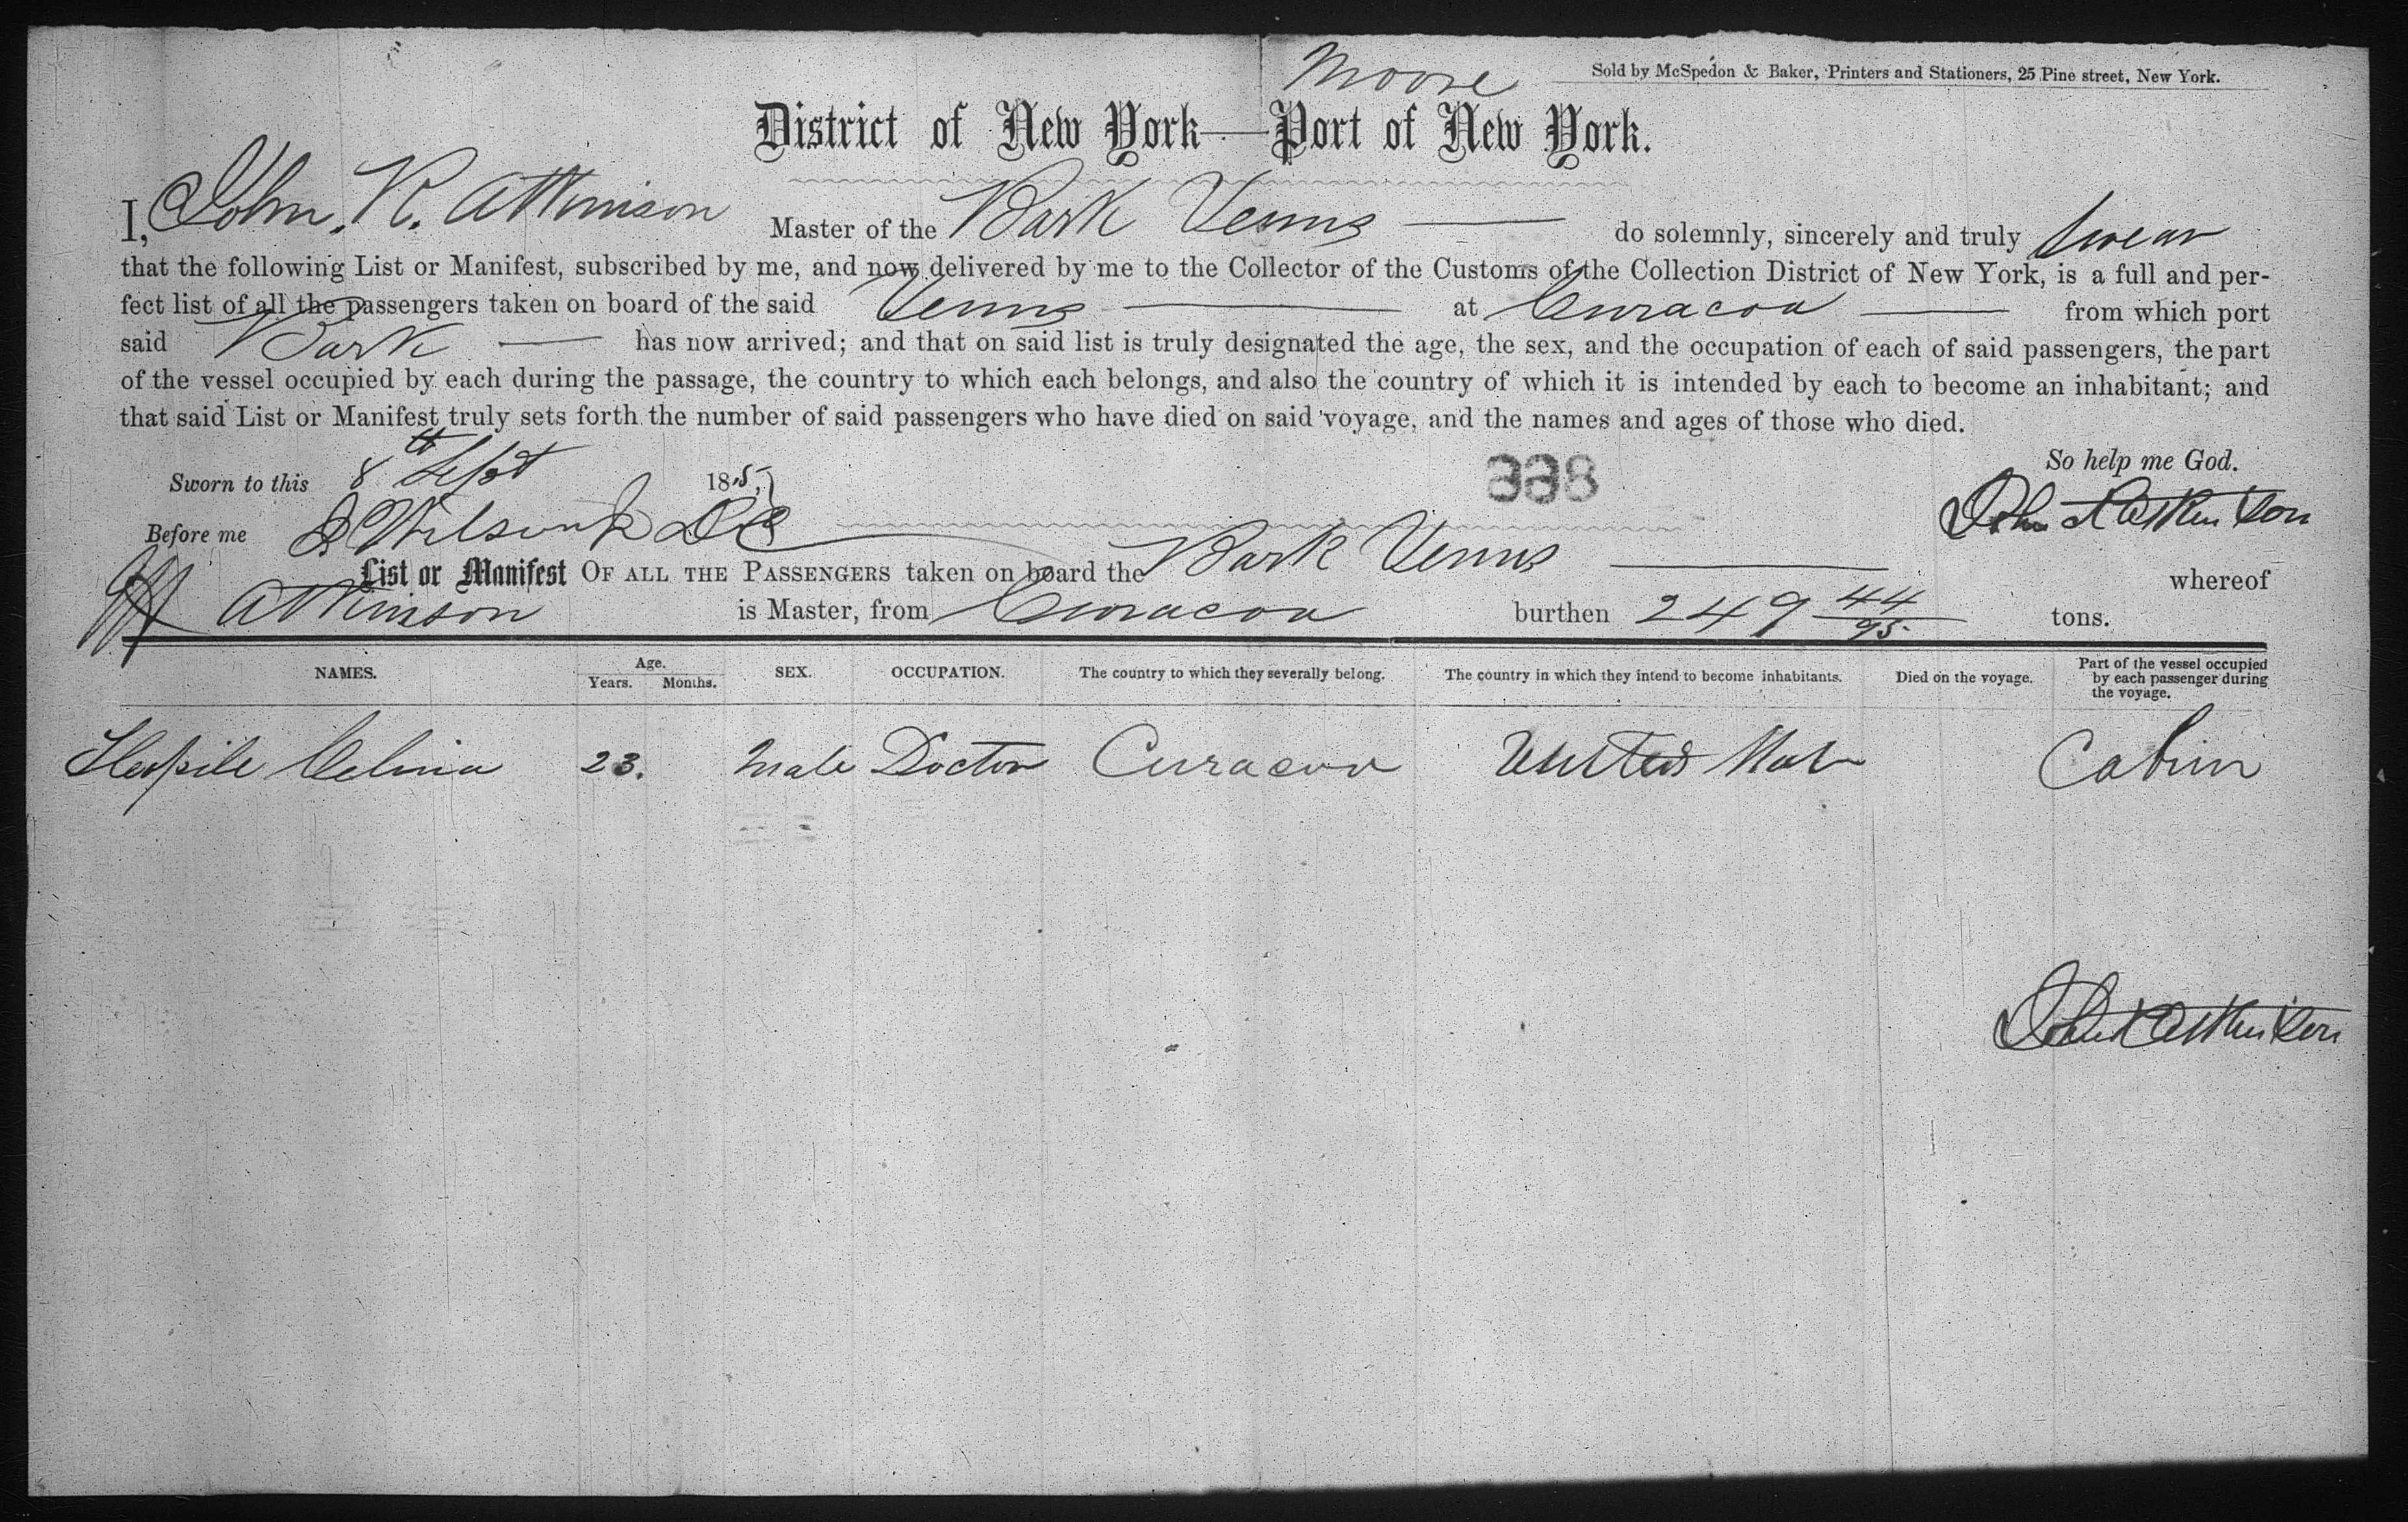 Moore
Sold by McSpedon & Baker, Printers and Stationers, 25 Pine street, New York.
District of New York—Port of New York.
I, John. R. Atkinson Master of the Bark Venus do solemnly, sincerely and truly swear
that the following List or Manifest, subscribed by me, and now delivered by me to the Collector of the Customs of the Collection District of New York, is a full and per-
fect list of all the passengers taken on board of the said Venus at Curacoa from which port
said Bark has now arrived; and that on said list is truly designated the age, the sex, and the occupation of each of said passengers, the part
of the vessel occupied by each during the passage, the country to which each belongs, and also the country of which it is intended by each to become an inhabitant; and
that said List or Manifest truly sets forth the number of said passengers who have died on said voyage, and the names and ages of those who died.
So help me God.
Sworn to this 8th Sept 185
338
John R Atkinson
Before me Wilson
List or Manifest OF ALL THE PASSENGERS taken on board the Bark Venus whereof
Atkinson is Master, from Curacoa burthen 249 44/95 tons.
NAMES. Age. Years. Months. SEX. OCCUPATION. The country to which they severally belong. The country in which they intend to become inhabitants. Died on the voyage. Part of the vessel occupied by each passenger during the voyage.
23. Male Doctor Curacoa United Cabin
John R Atkinson